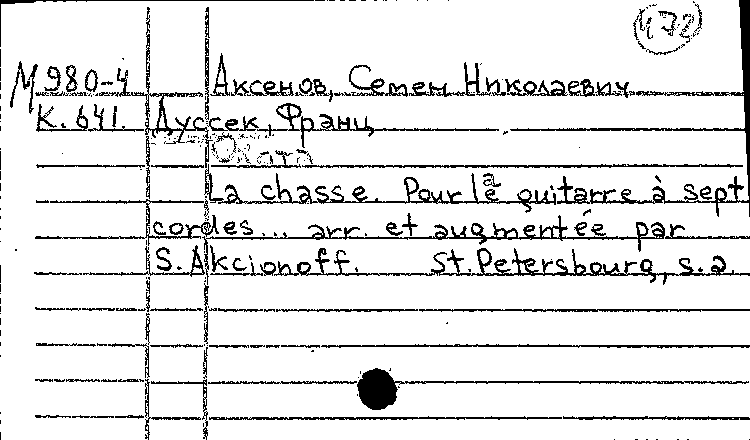 472
М 980-4 Аксенов, Семен Николаевич
К. 641. Дуссек, Франц
Охота
La chasse. Pour la guitarre à sept
cordes... arr. et augmentée par
S. Akcionoff. St. Petersbourg, s. a.